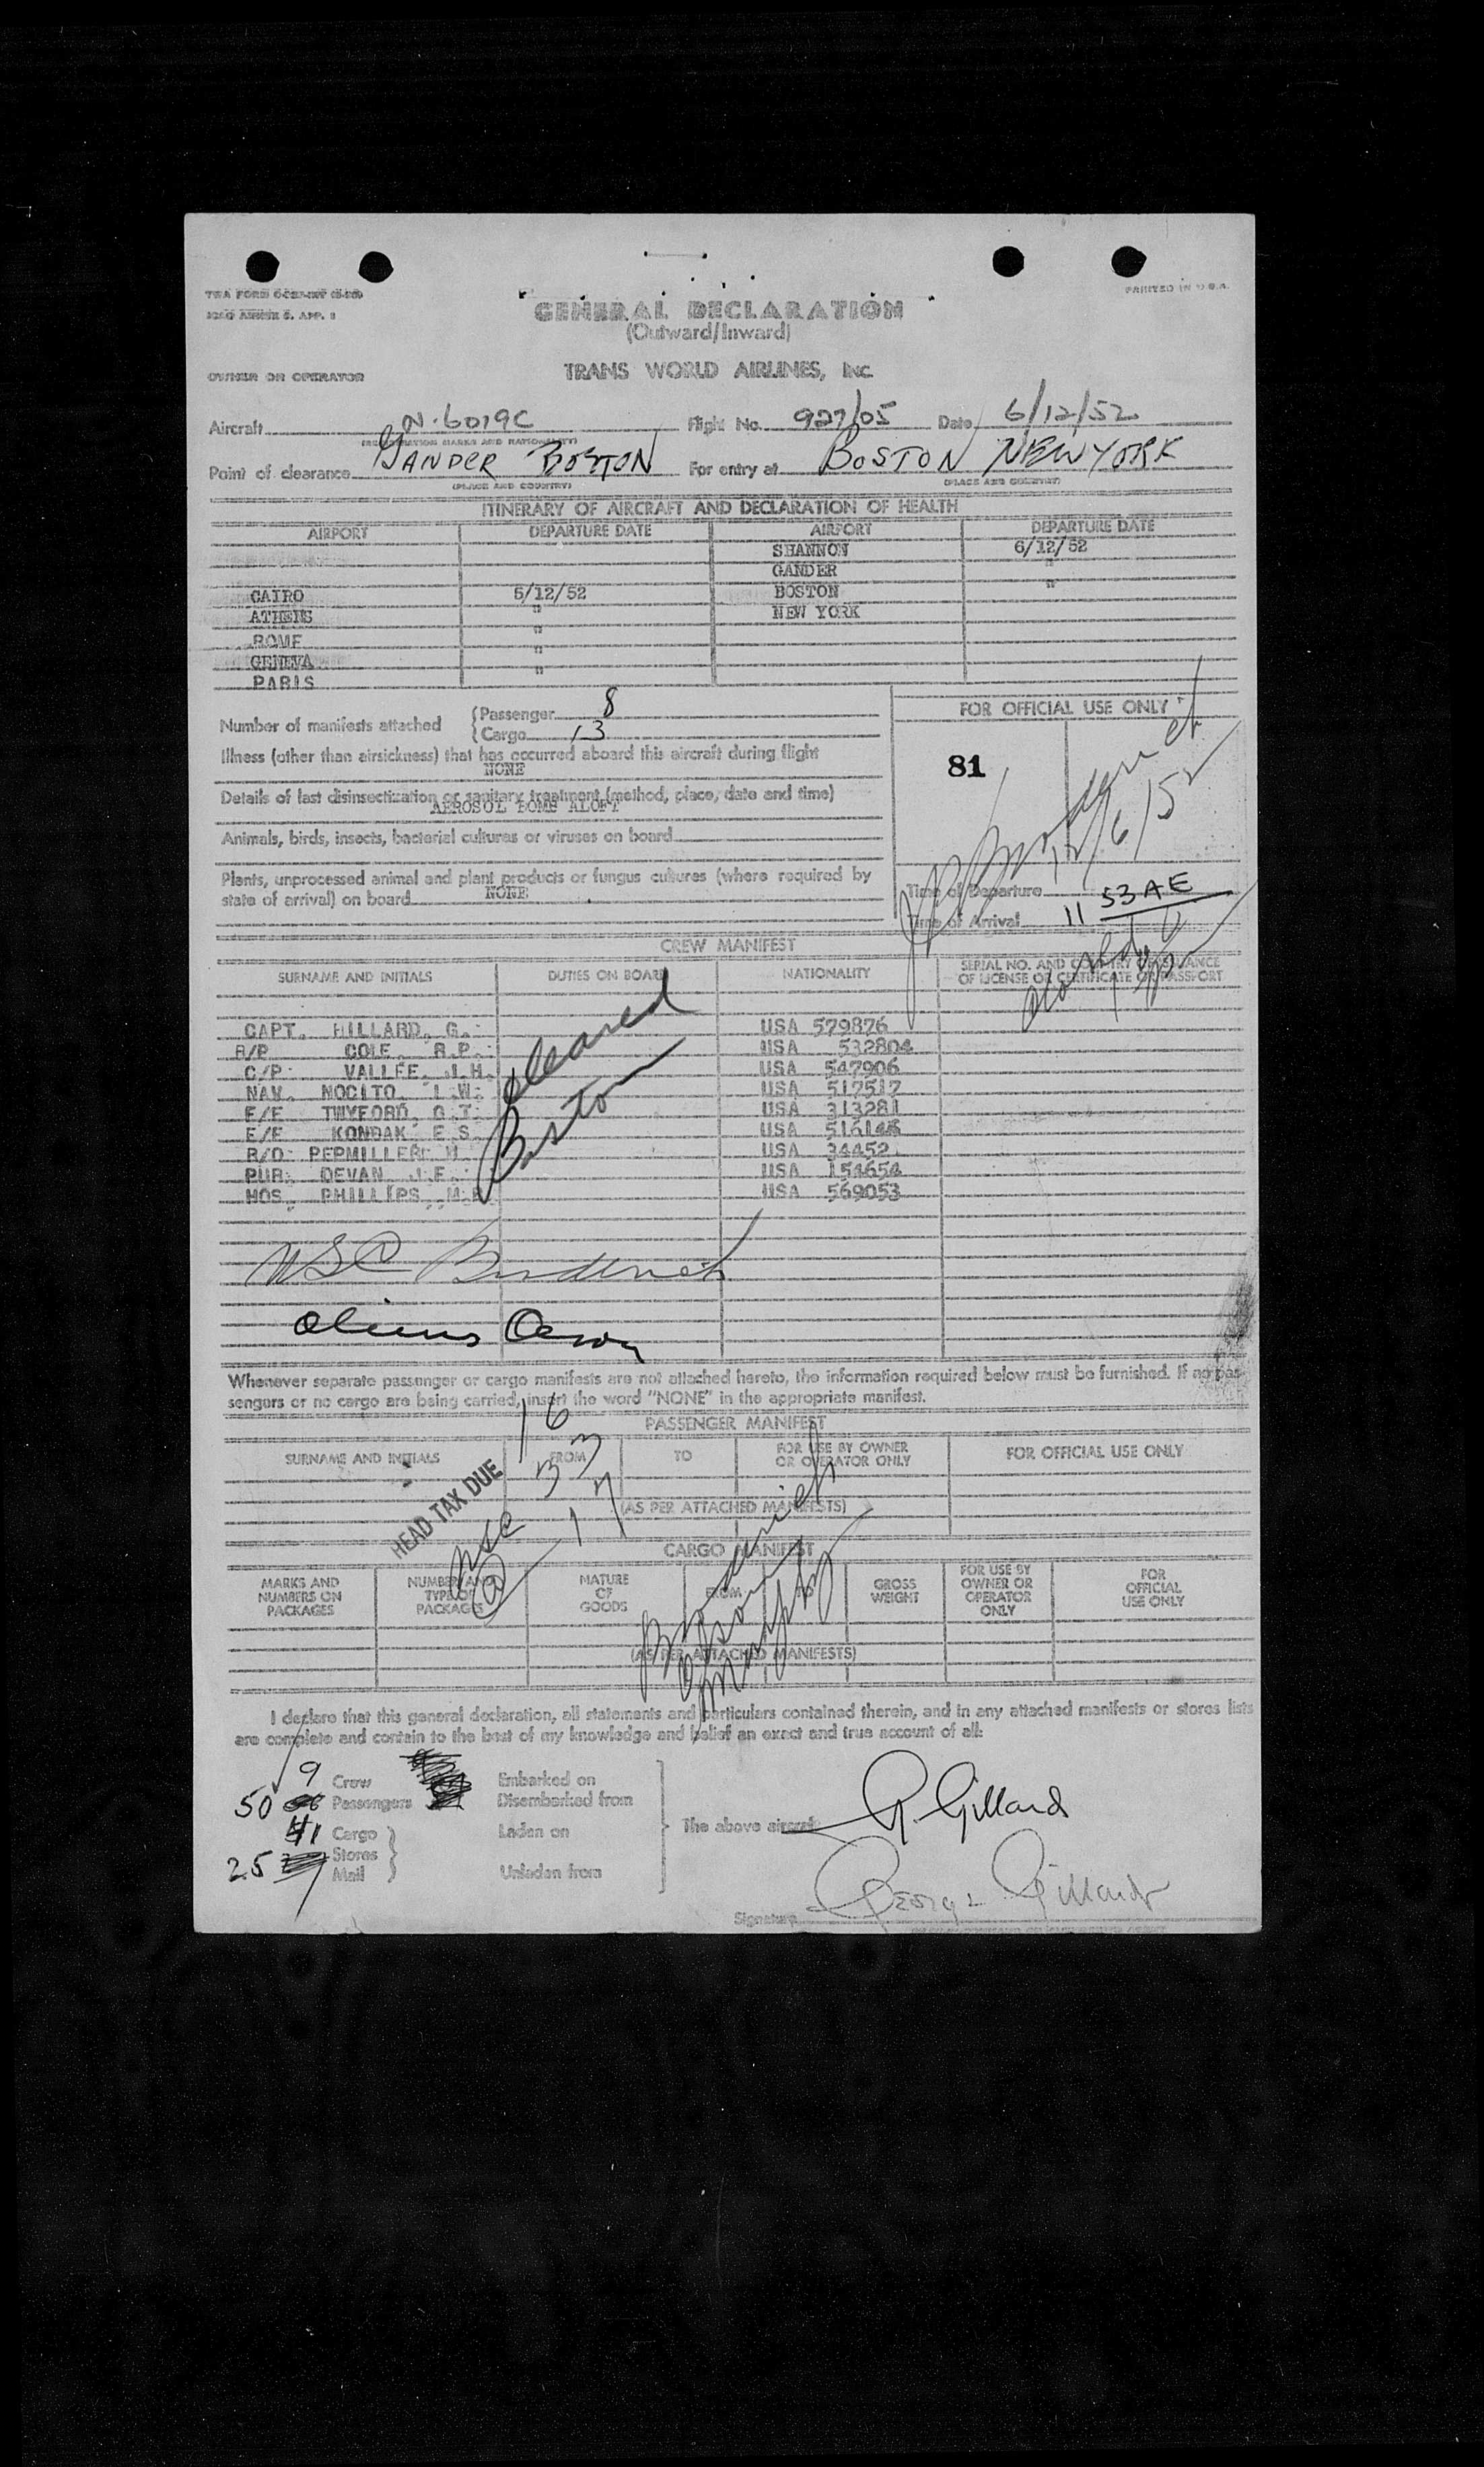 PRINTED IN U.S.A.
GENERAL DECLARATION
(Outward/Inward)
OWNER OR OPERATOR TRANS WORLD AIRLINES, INC.
Aircraft N-6019C Flight No. 927/05 Date 6/12/52
(REGISTRATION MARKS AND NATIONALITY)
Point of clearance GANDER BOSTON For entry at BOSTON NEW YORK
(PLACE AND COUNTRY) (PLACE AND COUNTRY)
ITINERARY OF AIRCRAFT AND DECLARATION OF HEALTH
AIRPORT DEPARTURE DATE AIRPORT DEPARTURE DATE
SHANNON 6/12/52
GANDER "
CAIRO 5/12/52 BOSTON "
ATHENS " NEW YORK
ROME "
GENEVA "
PARIS "
Number of manifests attached { Passenger 8
{ Cargo 13
FOR OFFICIAL USE ONLY
81
12/6/52
Illness (other than airsickness) that has occurred aboard this aircraft during flight
NONE
Details of last disinsectization or sanitary treatment (method, place, date and time)
AEROSOL BOMB ALOFT
Animals, birds, insects, bacterial cultures or viruses on board
Plants, unprocessed animal and plant products or fungus cultures (where required by
state of arrival) on board NONE
Time of Departure
Time of Arrival 11 53 AE
CREW MANIFEST
SURNAME AND INITIALS DUTIES ON BOARD NATIONALITY SERIAL NO. AND COUNTRY OF ISSUANCE
OF LICENSE OR CERTIFICATE OR PASSPORT
CAPT. HILLARD, G. USA 579876
R/P COLE R.P. USA 532804
C/P VALLEE, J.H. USA 547906
NAV. NOCITO L.W. USA 517517
F/E TWYFORD G.T. USA 313281
F/E KONDAK E.S. USA
R/O PEPMILLER USA 34452
PUR. DEVAN J.E. USA 154654
HOS. PHILLIPS USA 569053
Cleared
Boston
Whenever separate passenger or cargo manifests are not attached hereto, the information required below must be furnished. If no pas-
sengers or no cargo are being carried, insert the word "NONE" in the appropriate manifest.
PASSENGER MANIFEST
SURNAME AND INITIALS FROM TO FOR USE BY OWNER
OR OPERATOR ONLY FOR OFFICIAL USE ONLY
16
33
17
HEAD TAX DUE
(AS PER ATTACHED MANIFESTS)
CARGO MANIFEST
MARKS AND
NUMBERS ON
PACKAGES
NUMBER AND
TYPE OF
PACKAGES
NATURE
OF
GOODS
FROM TO
GROSS
WEIGHT
FOR USE BY
OWNER OR
OPERATOR
ONLY
FOR
OFFICIAL
USE ONLY
(AS PER ATTACHED MANIFESTS)
I declare that this general declaration, all statements and particulars contained therein, and in any attached manifests or stores lists
are complete and contain to the best of my knowledge and belief an exact and true account of all:
9 Crew Embarked on
50 Passengers Disembarked from
Cargo Laden on
Stores
25 Mail Unladen from
The above aircraft G. Gillard
Signature George Gillard